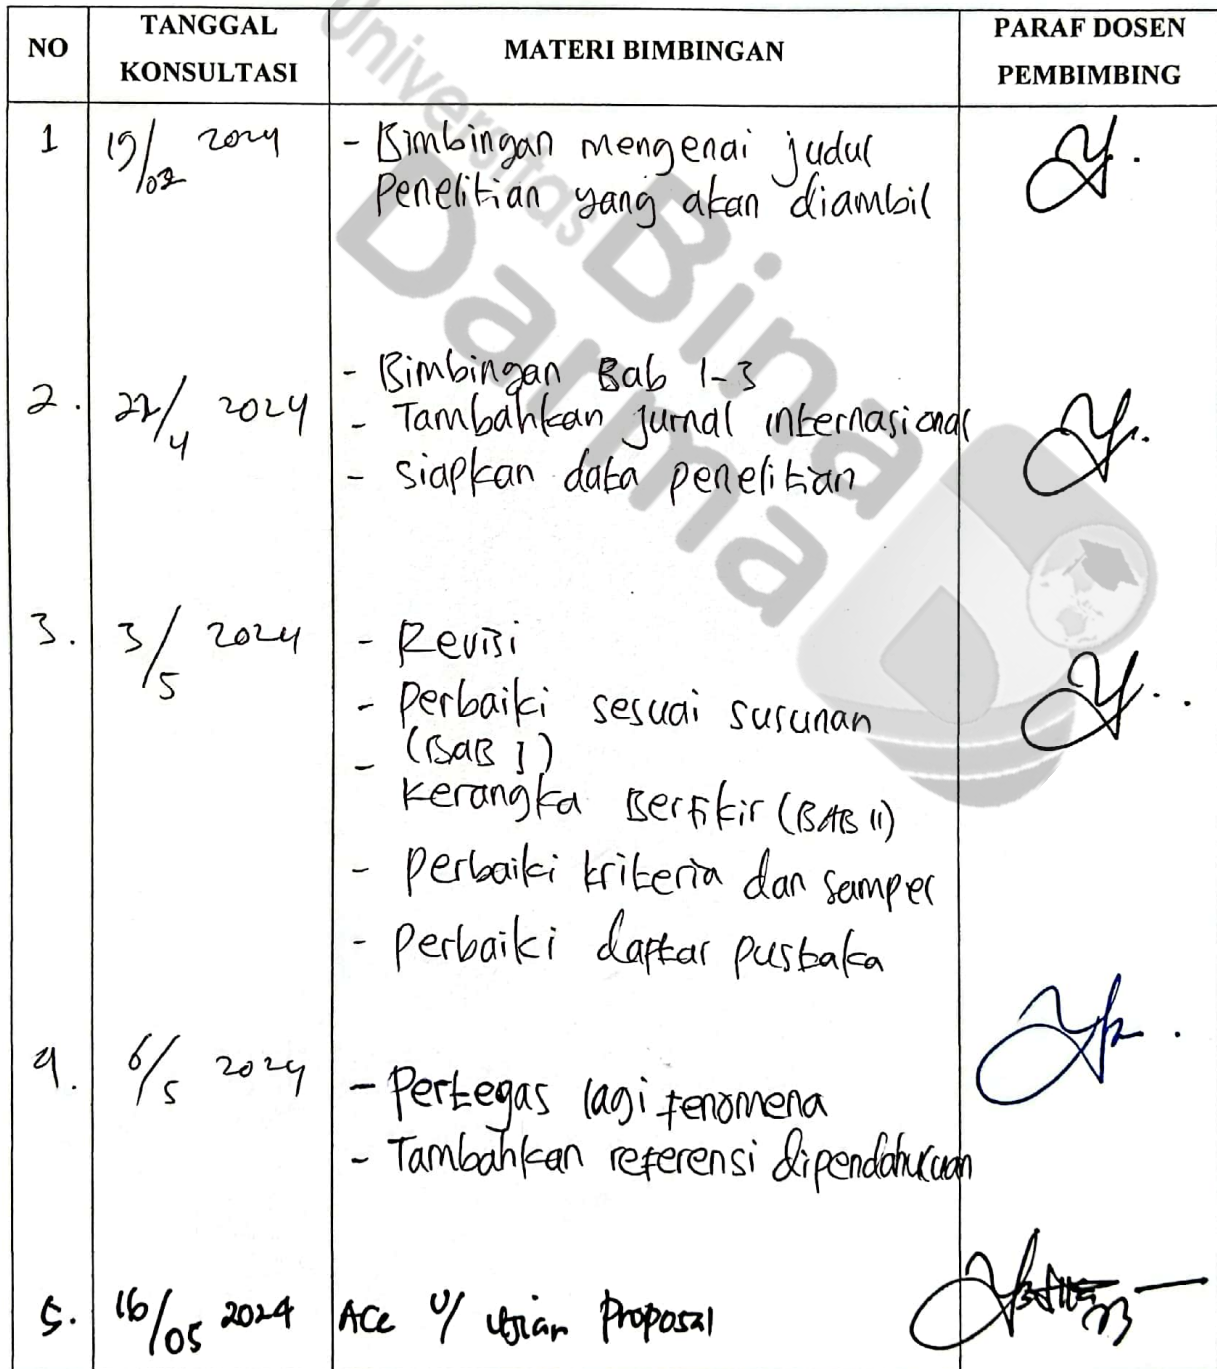 NO
TANGGAL KONSULTASI
MATERI BIMBINGAN
PARAF DOSEN PEMBIMBING
Universitas
Bina
Darma
1 2024 - Bimbingan mengenai judul
Penelitian yang akan diambil
- Bimbingan Bab 1-3
2. /4 2024 - Tambahkan jurnal internasional
- siapkan data penelitian
3. 3/5 2024 - Revisi
- Perbaiki sesuai susunan
- (BAB I)
kerangka Berfikir (BAB II)
- Perbaiki kriteria dan sampel
- Perbaiki daftar pustaka
4. 6/5 2024 - Pertegas lagi fenomena
- Tambahkan referensi dipendahuluan
5. 16/05 2024 Acc U/ Ujian Proposal